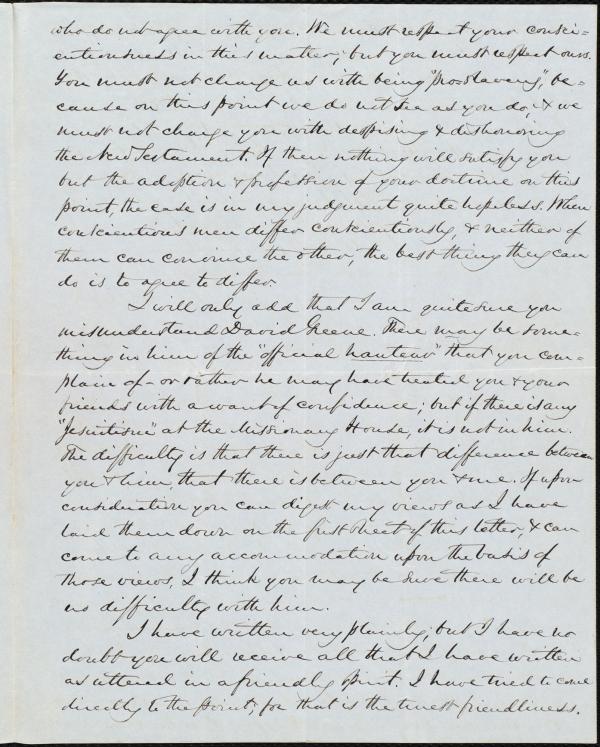 who do not agree with you. We must respect your consci=
entiousness in this matter; but you must respect ours.
You must not charge us with being "pro-slavery", be=
cause on this point we do not see as you do; & we
must not charge you with despising & dishonoring
the New Testament. If then nothing will satisfy you
but the adoption & profession of your doctrine on this
point, the case is in my judgment quite hopeless. When
conscientious men differ conscientiously, & neither of
them can convince the other, the best thing they can
do is to agree to differ.
I will only add that I am quite sure you
misunderstand David Greene. There may be some=
thing in him of the "official hauteur" that you com=
plain of - or rather he may have treated you & your
friends with a want of confidence; but if there is any
"Jesuitism" at the Missionary House, it is not in him.
The difficulty is that there is just that difference between
you & him, that there is between you & me. If upon
consideration you can digest my views as I have
laid them down on the first sheet of this letter, & can
come to any accommodation upon the basis of
those views, I think you may be sure there will be
no difficulty with him.
I have written very plainly; but I have no
doubt you will receive all that I have written
as uttered in a friendly spirit. I have tried to come
directly to the point; for that is the truest friendliness.